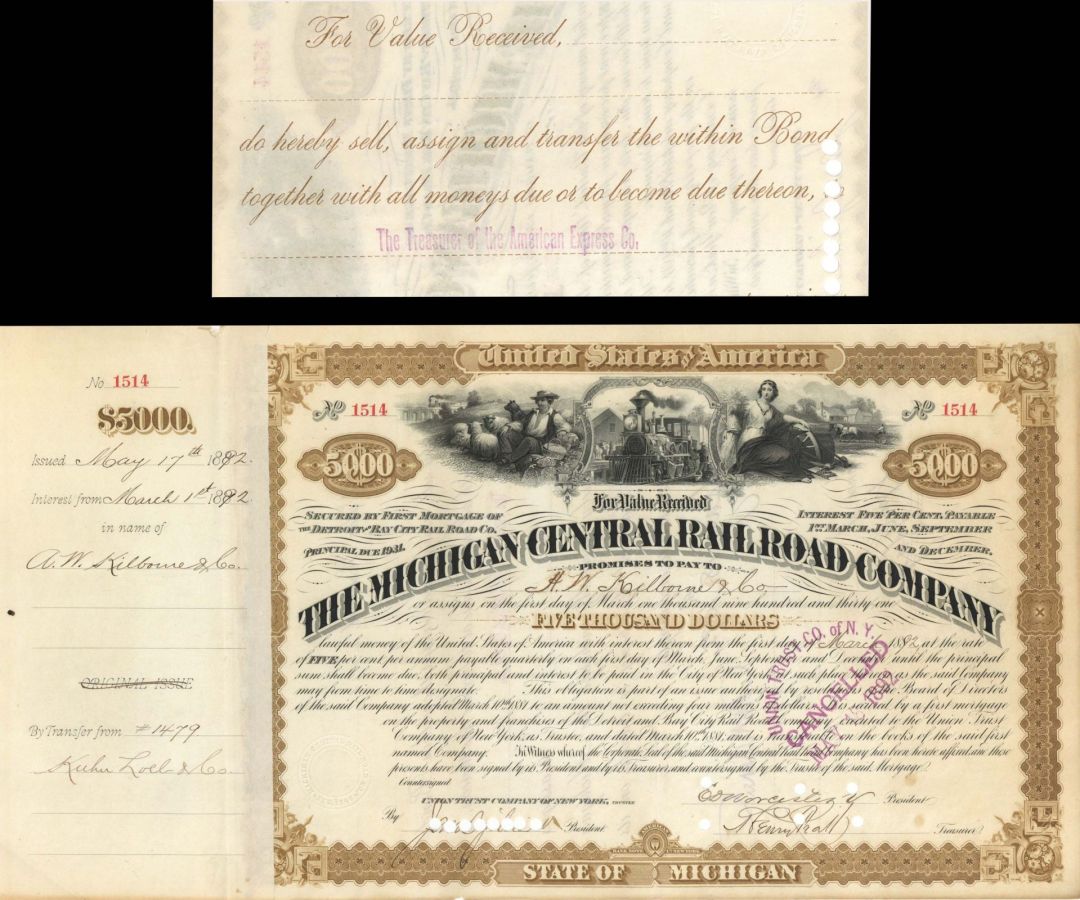 For Value Received,
do hereby sell, assign and transfer the within Bond
together with all moneys due or to become due thereon,
The Treasurer of the American Express Co.
No 1514
$5000.
Issued May 17th 1892.
Interest from March 1st 1892
in name of
A. W. Kilborne & Co.
ORIGINAL ISSUE
By Transfer from #1479
Kuhn Loeb & Co.
United States of America
No 1514
No 1514
5000
5000
For Value Received
SECURED BY FIRST MORTGAGE OF
THE DETROIT AND BAY CITY RAIL ROAD CO.
PRINCIPAL DUE 1931.
INTEREST FIVE PER CENT. PAYABLE
1ST MARCH, JUNE, SEPTEMBER
AND DECEMBER.
THE MICHIGAN CENTRAL RAIL ROAD COMPANY
PROMISES TO PAY TO
A. W. Kilborne & Co
or assigns on the first day of March one thousand nine hundred and thirty one
FIVE THOUSAND DOLLARS
lawful money of the United States of America with interest thereon from the first day of March 1892 at the rate
of FIVE per cent per annum payable quarterly on each first day of March June September and December until the principal
sum shall become due both principal and interest to be paid in the City of New York at such place as the said company
may from time to time designate. This obligation is part of an issue authorized by resolution of the Board of Directors
of the said Company adopted March 10th 1881 to an amount not exceeding four millions of dollars and is secured by a first mortgage
on the property and franchises of the Detroit and Bay City Rail Road Company executed to the Union Trust
Company of New York, as Trustee, and dated March 10th 1881, and is transferable on the books of the said first
named Company. In Witness whereof the Corporate Seal of the said Michigan Central Rail Road Company has been hereto affixed and these
presents have been signed by its President and by its Treasurer, and countersigned by the Trustee of the said Mortgage.
UNION TRUST CO. of N.Y.
CANCELLED
1892
Countersigned
UNION TRUST COMPANY OF NEW YORK, TRUSTEE
By President
President
Henry Pratt Treasurer
STATE OF MICHIGAN